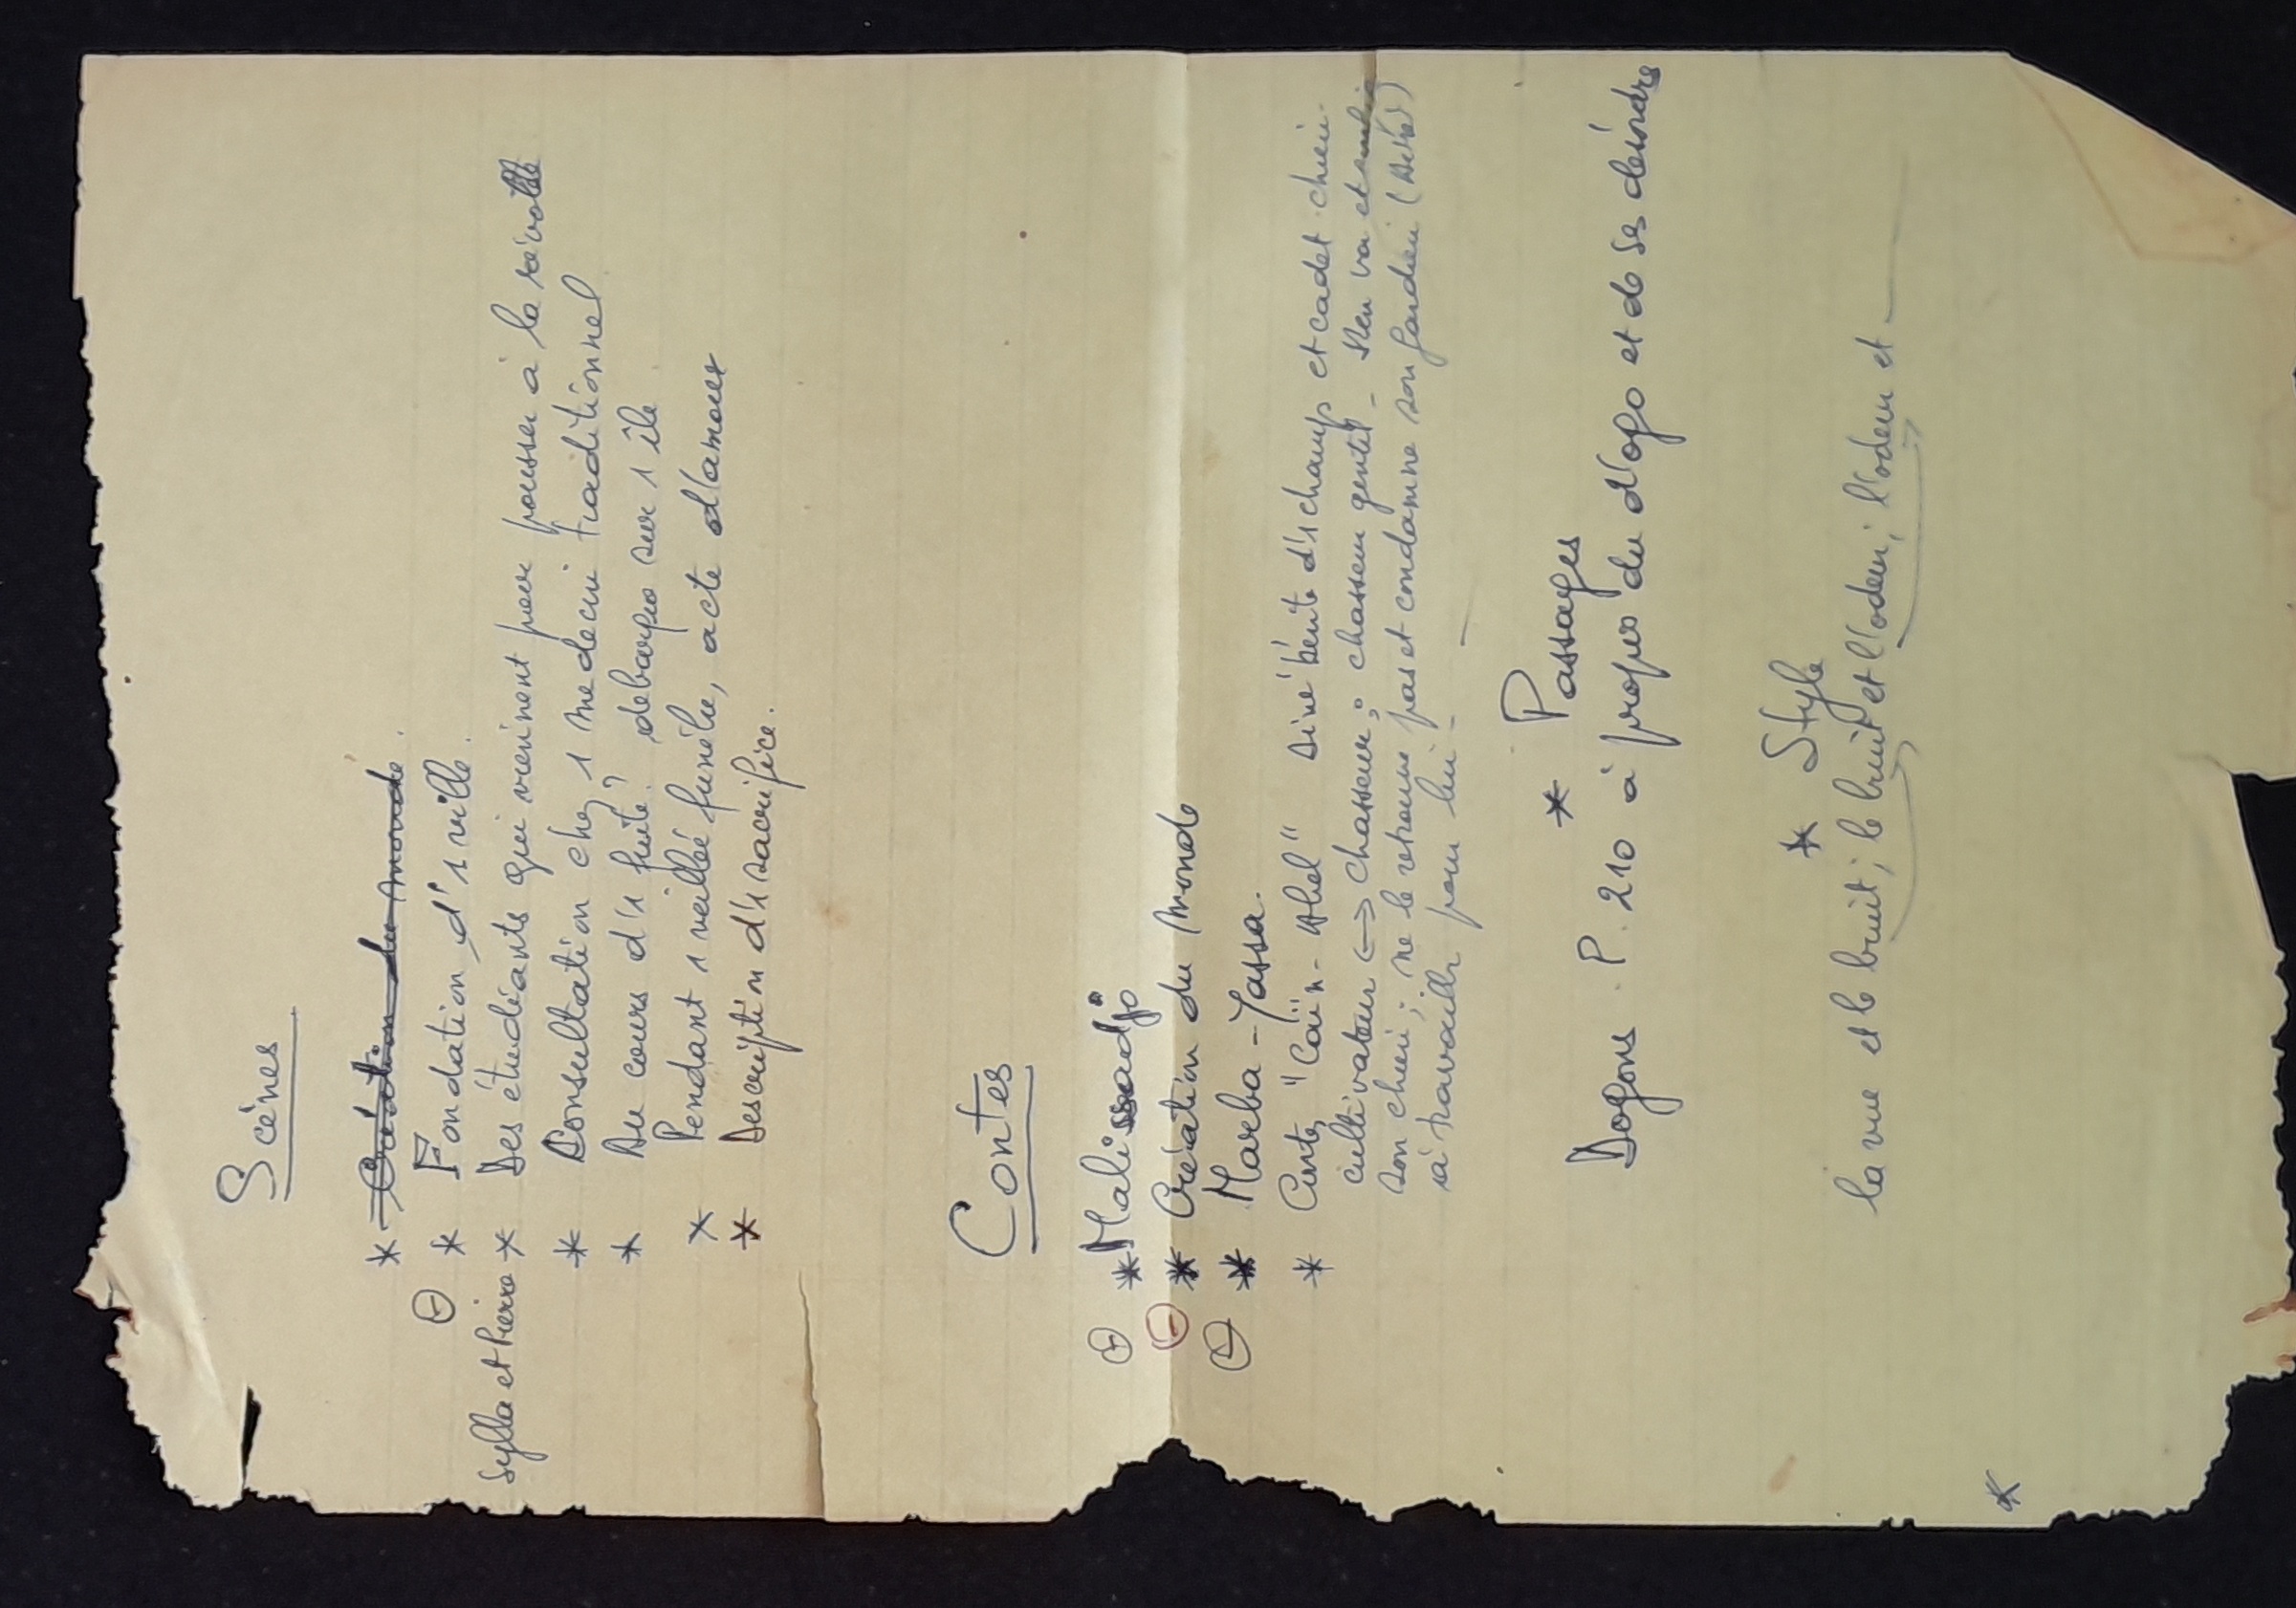 Scènes
* Création du monde.
⊖ * Fondation d'1 ville.
Sylla et Pierre * Des étudiants qui viennent pour pousser à la révolte
* Consultation chez 1 medecin traditionnel
* Au cours d'1 fuite, debarque sur 1 île
* Pendant 1 veillée funèbre, acte d'amour
* Description d'1 sacrifice.
Contes
⊖ * Malissadjo
⊖ * Création du Monde
⊖ * Marba-Yassa.
* Conte "Caïn-Abel" Aîné hérite d'1 champ et cadet chien.
cultivateur <-> chasseur; chasseur gentil - s'en va et
son chien; ne le retrouve pas et condamne son gardien
à travailler pour lui -
* Passages
Dogons P. 210 à propos du d'ogo et de ses désordres
* Style
la vue et le bruit; le bruit et l'odeur; l'odeur et —
*